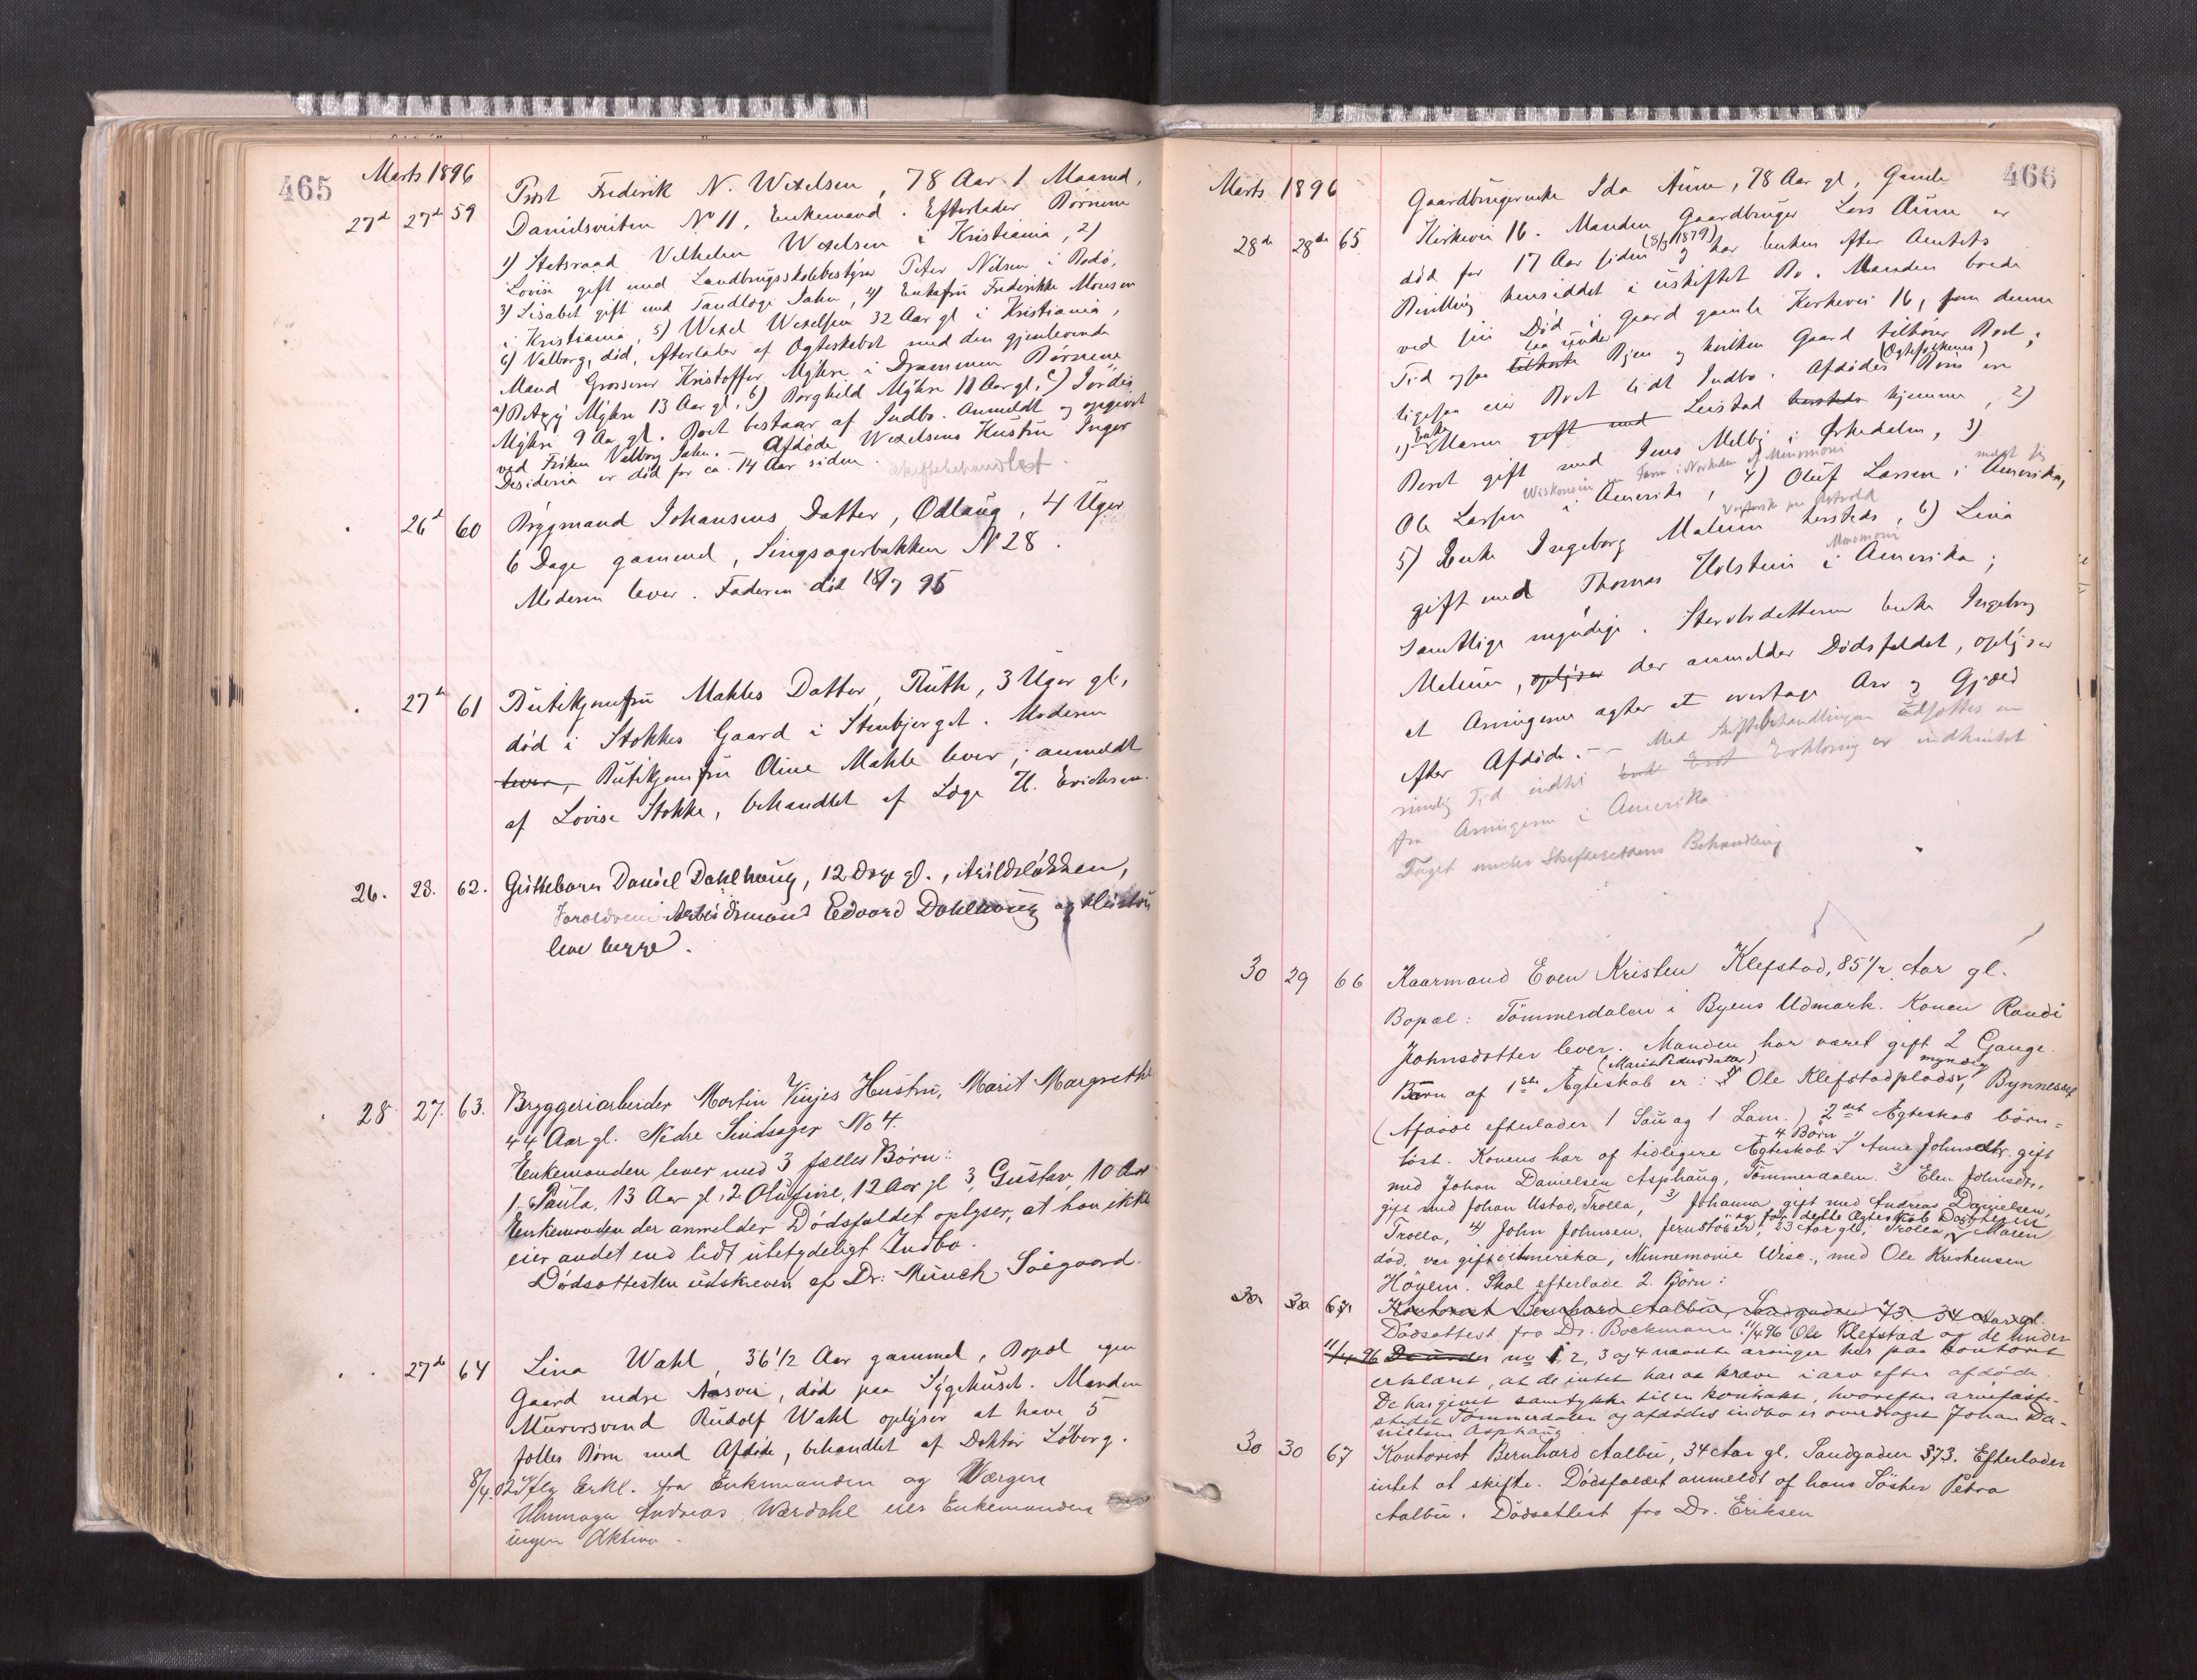 465
Marts 1896
27d 27d 59 Prost Frederik N. Wexelsen, 78 Aar 1 Maaned,
Danielsveiten No 11, Enkemand. Efterlader Børnene
1) Statsraad Vilhelm Wexelsen i Kristiania, 2)
Lovise gift med Landbrugsskolebestyrer Peter Nilsen i Bodø,
3) Lisabet gift med Tandlæge Sahn, 4) Enkefru Frederikke Monsen
i Kristiania, 5) Wexel Wexelsen 32 Aar gl i Kristiania,
6) Valborg, død, efterlader af Ægteskabet med den gjenlevende
Mand Grosserer Kristoffer Myhre i Drammen Børnene
a) Betzy Myhre 13 Aar gl, b) Borghild Myhre 11 Aar gl, c) Jordis
Myhre 9 Aar gl. Boet bestaar af Indbo. Anmeldt og opgivet
ved Frøken Valborg Sahn. – Afdøde Wexelsens Hustru Inger
Desideria er død for ca. 14 Aar siden. Skiftebehandlet.
26d 60 Brygmand Johansens Datter, Odlaug, 4 Uger
6 Dage gammel, Singsagerbakken No 28.
Moderen lever. Faderen død 18/7 95
27d 61 Butikjomfru Mahles Datter, Ruth, 3 Uger gl,
død i Stokkes Gaard i Stenbjerget. Moderen
lever, Butikjomfru Oline Mahle lever; anmeldt
af Lovise Stokke, behandlet af Læge H. Erichsen.
26. 28. 62. Guttebarn Daniel Dahlhaug, 12 Dage gl., Arildsløkken,
Foreldrene Arbeidsmand Edvard Dahlhaug og Hustru
leve begge.
28 27. 63. Bryggeriarbeider Martin Vinjes Hustru, Marit Margrethe
44 Aar gl. Nedre Lindsager No 4.
Enkemanden lever med 3 fælles Børn:
1. Paula, 13 Aar gl, 2 Olufine, 12 Aar gl 3, Gustav, 10 Aar
Enkemanden der anmelder Dødsfaldet oplyser, at han ikke
eier andet end lidt ubetydeligt Indbo.
Dødsattesten udskreven af Dr. Munch Søegaard.
27d 64 Lina Wahl, 36 1/2 Aar gammel, Bopæl egen
Gaard nedre Aasvei, død paa Sygehuset. Manden
Murersvend Rudolf Wahl oplyser at have 5
fælles Børn med Afdøde, behandlet af Doktor Løberg.
8/4 02 Iflg Erkl. fra Enkemanden og Værgen
Uhrmager Andreas Værdahl eier Enkemanden
ingen Aktiva.
466
Marts 1896
28de 28de 65 Gaardbrugerenke Ida Aune, 78 Aar gl, Gamle
Kirkevei 16. Manden Gaardbruger Lars Aune er
død for 17 Aar siden (8/3 1879) og har Enken efter Amtets
Bevilling hensiddet i uskiftet Bo. Manden boede
ved sin Død i Gaard gamle Kirkevei 16, som denne
Tid ogsaa tilhørte laa under Byen og hvilken Gaard tilhører Boet;
ligesaa eier Boet lidt Indbo. Afdødes (Ægtefolkenes) Børn er
1) Enke Maren gift med Leistad hersteds hjemme, 2)
Beret gift med Jens Melby i Ørkedalen, 3)
Ole Larsen i Amerika, 4) Oluf Larsen i Amerika,
5) Enke Ingeborg Malum hersteds, 6) Lina
gift med Thomas Holstein i Amerika;
samtlige myndige. Stervbodatteren Enke Ingeborg
Malum, oplyser der anmelder Dødsfaldet, oplyser
at Arvingerne agter at overtage Arv og Gjæld
efter Afdøde. – Med Skiftebehandlingen udsættes en
rimelig Tid indtil Erklæring er indhentet
fra Arvingerne i Amerika.
Taget under Skifterettens Behandling
30 29 66 Kaarmand Even Kristen Klefstad, 85 1/2 Aar gl.
Bopæl: Tømmerdalen i Byens Udmark. Konen Randi
Johnsdatter lever. Manden har været gift 2 Gange.
Børn af 1ste Ægteskab (Marit Pedersdatter) er: 1) Ole Klefstadplads, myndig, Bynnesset
(Afdøde efterlader 1 Sau og 1 Lam.) 2det Ægteskab børn=
løst. Konens har af tidligere Ægteskab 4 Børn 1) Anne Johnsdtr. gift
med Johan Danielsen Asphaug, Tømmerdalen. 2) Elen Johnsdtr.
gift med Johan Ustad, Trolla, 3) Johanna gift med Andreas Danielsen,
Trolla, 4) John Johnsen, Jernstøber, 23 Aar gl, Trolla og før dette Ægteskab Datteren Maren
død, var gift i Amerika, Minnemonie Wisc., med Ole Kristensen
Høyem. Skal efterlade 2 Børn:
30 30 67 Kontorist Bernhard Aalbu, Sandgaden 73. 34 Aar gl.
Dødsattest fra Dr. Boekmann. 11/4 96 Ole Klefstad og de under
11/4 96 De under no 1, 2, 3 og 4 nævnte arvinger har paa kontoret
erklæret, at de intet har at kræve i arv efter afdøde.
De har givet samtykke til en kontrakt, hvorefter arvefæste-
stedet Tømmerdalen og afdødes indbo er overdraget Johan Da-
nielsen Asphaug
30 30 67 Kontorist Bernhard Aalbu, 34 Aar gl. Sandgaden 73. Efterlader
intet at skifte. Dødsfaldet anmeldt af hans Søster Petra
Aalbu. Dødsattest fra Dr. Eriksen